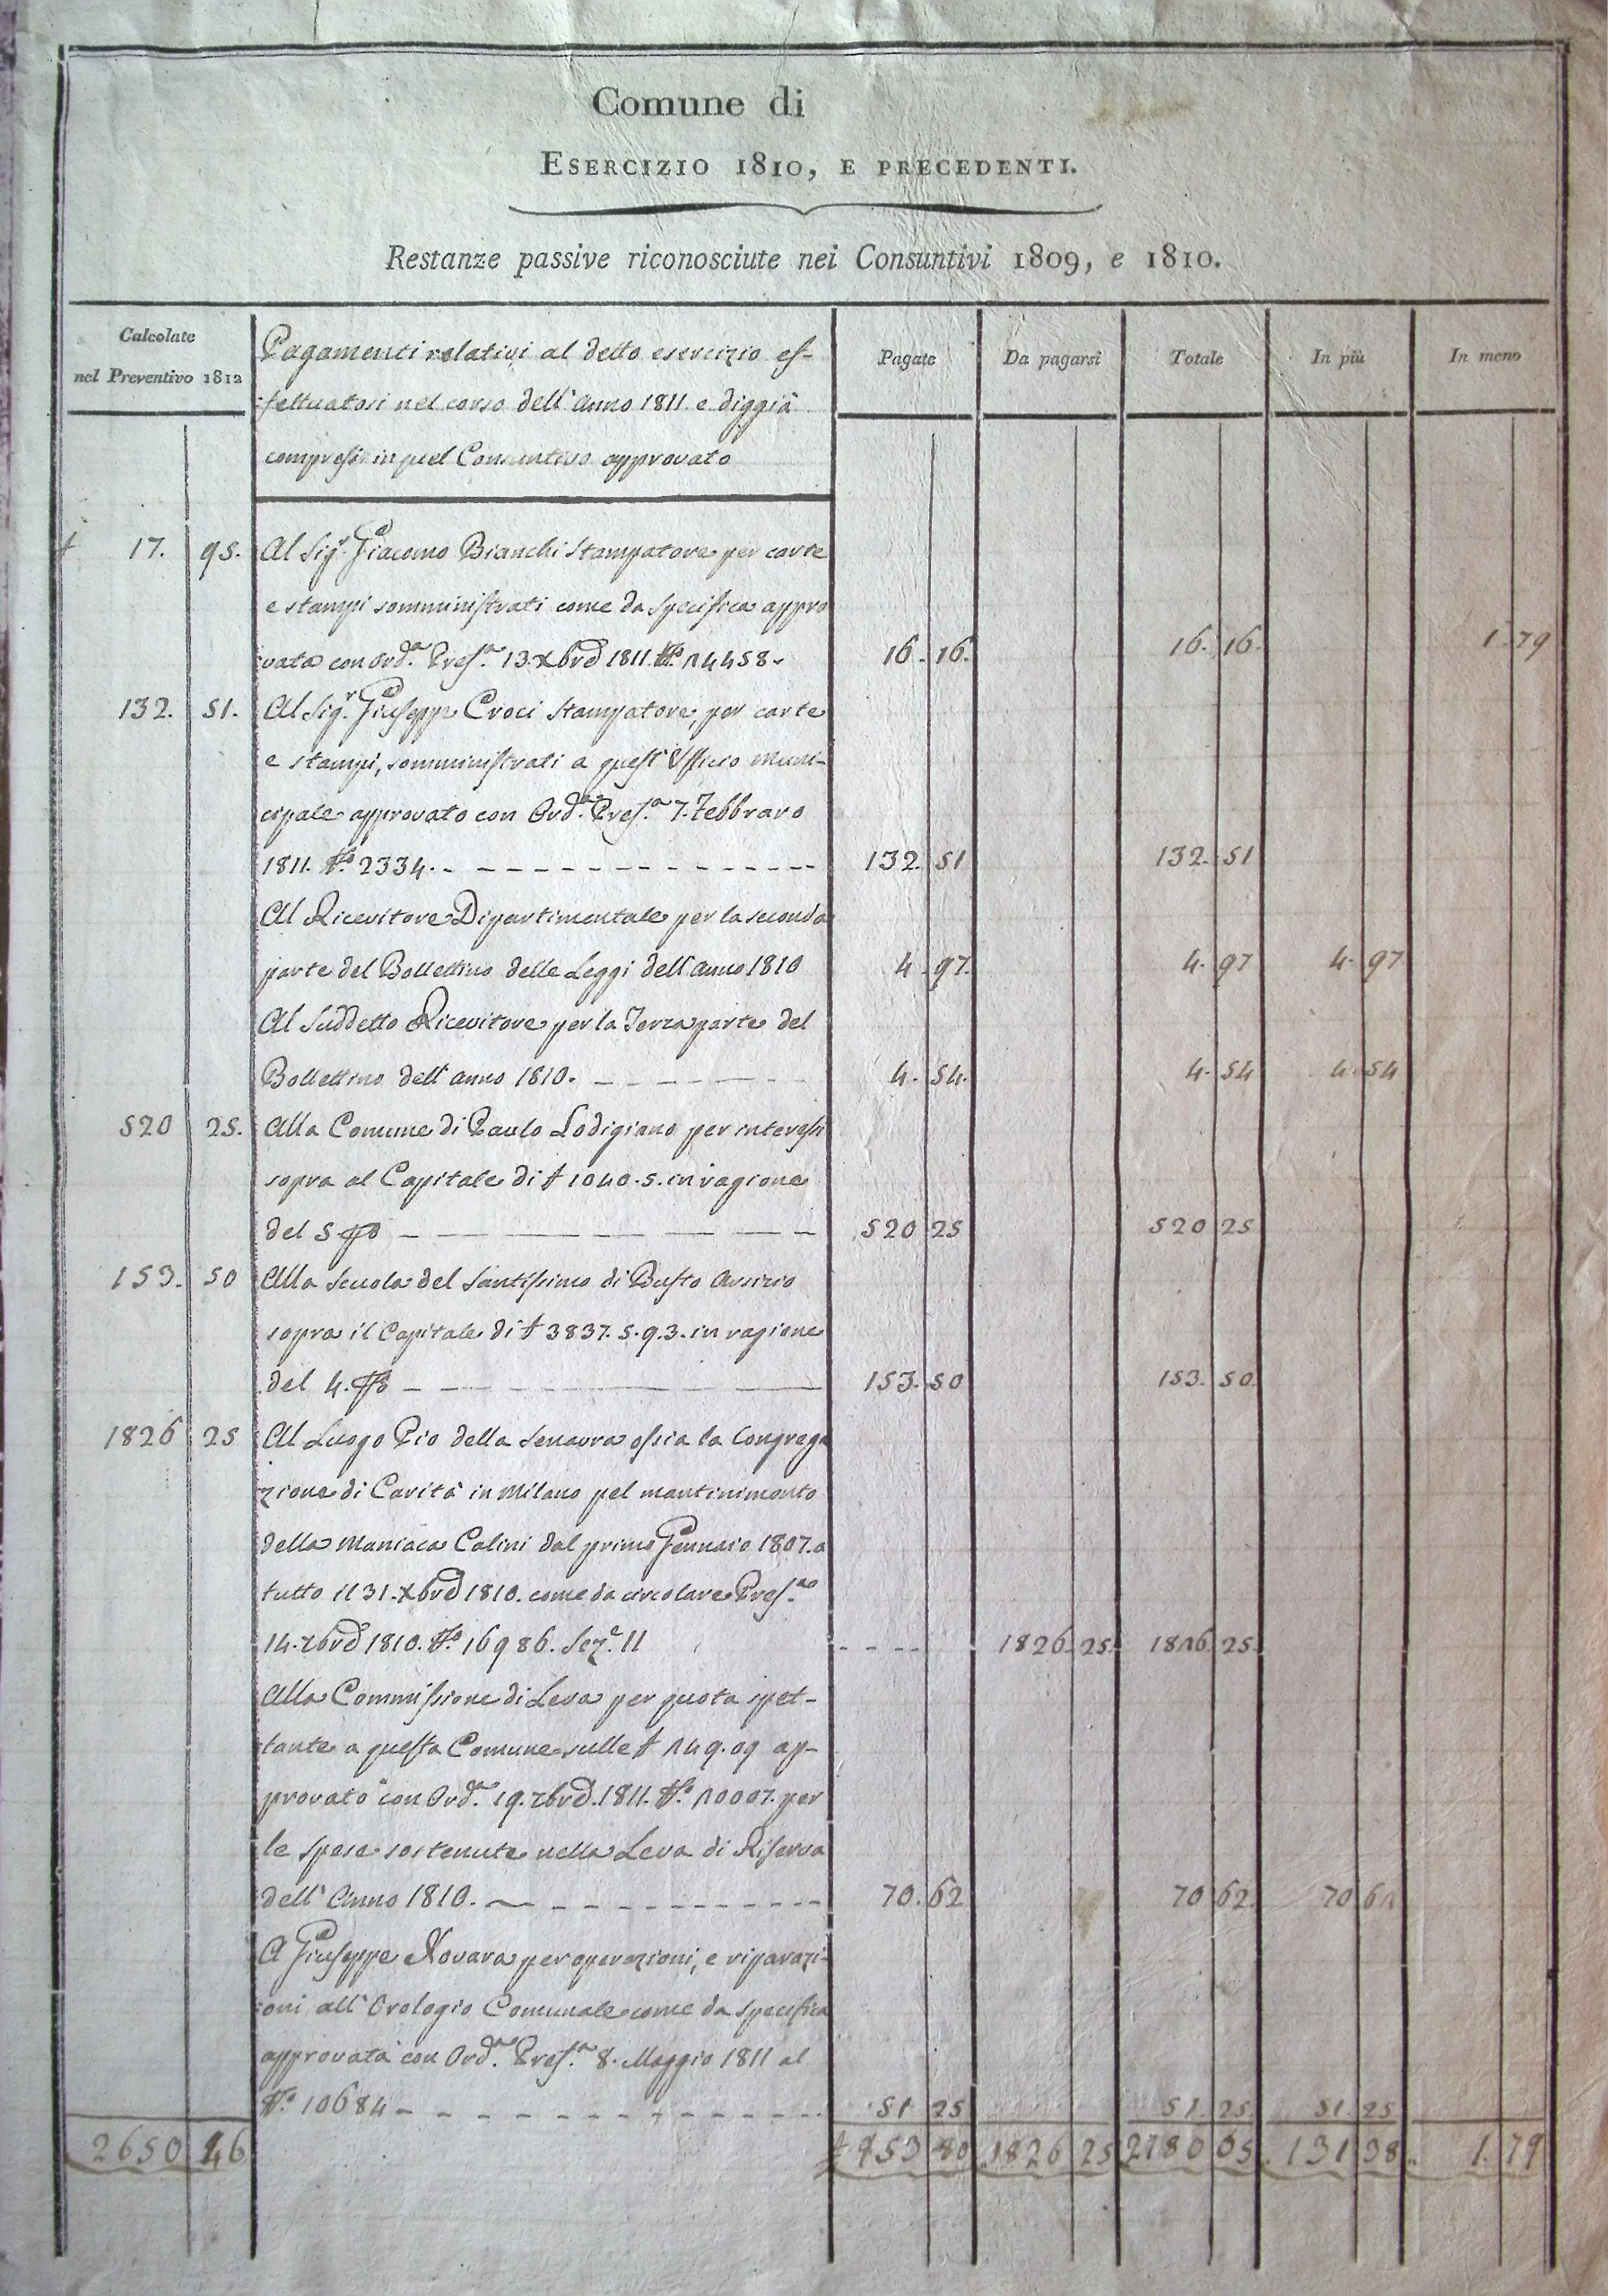 Comune di
ESERCIZIO 1810, E PRECEDENTI.
Restanze passive riconosciute nei Consuntivi 1809, e 1810.
Calcolate
nel Preventivo 1812
Pagamenti relativi al detto esercizio ef-
fettuatosi nel corso dell' Anno 1811 e diggià
compresi in quel Consuntivo approvato
Pagate
Da pagarsi
Totale
In più
In meno
17. 95. Al Sig.r Giacomo Bianchi Stampatore per carte
e stampi somministrati come da specifica appro
vata con Ord.a Pref.a 13. Xbre 1811. N.o 14458. 16. 16. 16. 16. 1. 79
132. 51. Al Sig.r Giuseppe Croci Stampatore, per carte
e stampi, somministrati a quest' Ufficio Muni-
cipale approvato con Ord.a Pref.a 7. Febbraro
1811. N.o 2334. 132. 51 132. 51
Al Ricevitore Dipartimentale per la seconda
parte del Bollettino delle Leggi dell' anno 1810 4. 97. 4. 97 4. 97
Al Suddetto Ricevitore per la Terza parte del
Bollettino dell' anno 1810. 4. 54. 4. 54 4. 54
520 25. Alla Comune di Paulo Lodigiano per interessi
sopra al Capitale di £ 1040. 5. in ragione
del 5 520 25 520 25
153. 50 Alla Scuola del Santissimo di Busto Arsizio
sopra il Capitale di £ 3837. 5. 9. 3. in ragione
del 4. 153. 50 153. 50
1826 25 Al Luogo Pio della Senavra ossia la Congrega
zione di Carità in Milano pel mantinimento
della Maniaca Colini dal primo Gennaio 1807. a
tutto il 31. Xbre 1810. come da circolare Pref.
14. 7bre 1810. N.o 16986. Sez.e II 1826. 25. 1826. 25.
Alla Commissione di Leva per quota spet-
tante a questa Comune sulle £ 149. 09 ap-
provato con Ord.a 19. 7bre. 1811. N.o 10007. per
le spese sostenute nella Leva di Riserva
dell' Anno 1810. 70. 62 70 62. 70 62
A Giuseppe Novara per operazioni, e riparazi-
oni all' Orologio Comunale come da specifica
approvata con Ord.a Pref.a 8. Maggio 1811 al
N.o 10684 51 25 51. 25 51 25
2650 46 £ 953 80 1826 25 2780 05 131 38 1. 79